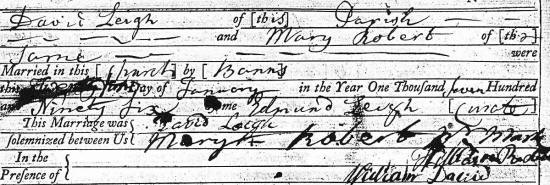 David Leigh of [this] Parish
and Mary Robert of [this]
Same were
Married in this [Church] by [Banns]
this Day of January in the Year One Thousand seven Hundred
and Ninety Six Edmund Leigh [Curate]
This Marriage was David Leigh
solemnized between Us Mary Robert Mark
In the William
Presence of William David